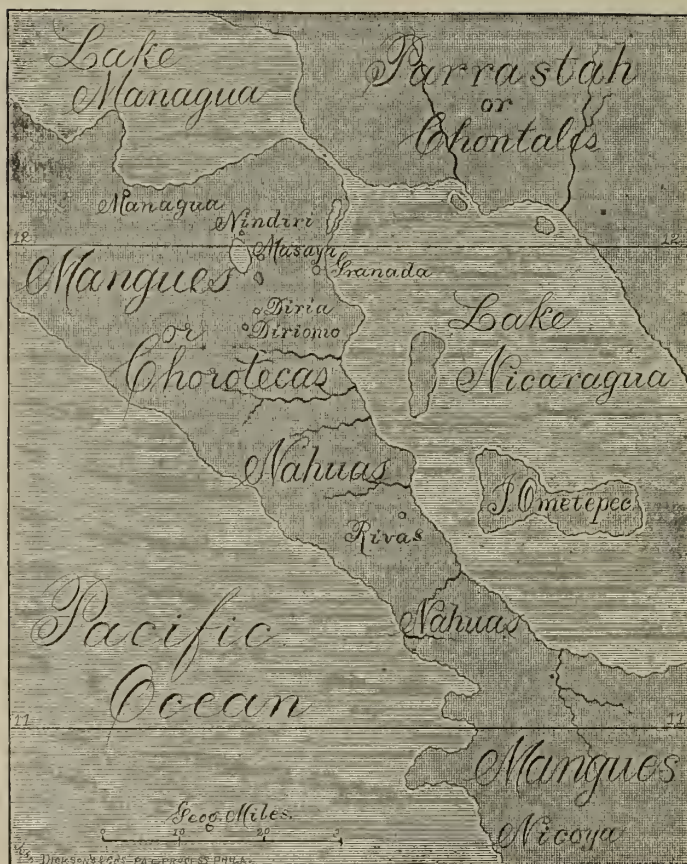 Lake
Managua
Parrastah
or
Chontalis
Managua
Nindiri
12
12
Masaya
Granada
Mangues
or
Chorotecas
Diria
Diriomo
Lake
Nicaragua
Nahuas
I. Ometepec
Rivas
Nahuas
Pacific
Ocean
11
11
Mangues
Nicoya
Geog. Miles.
0 10 20 30